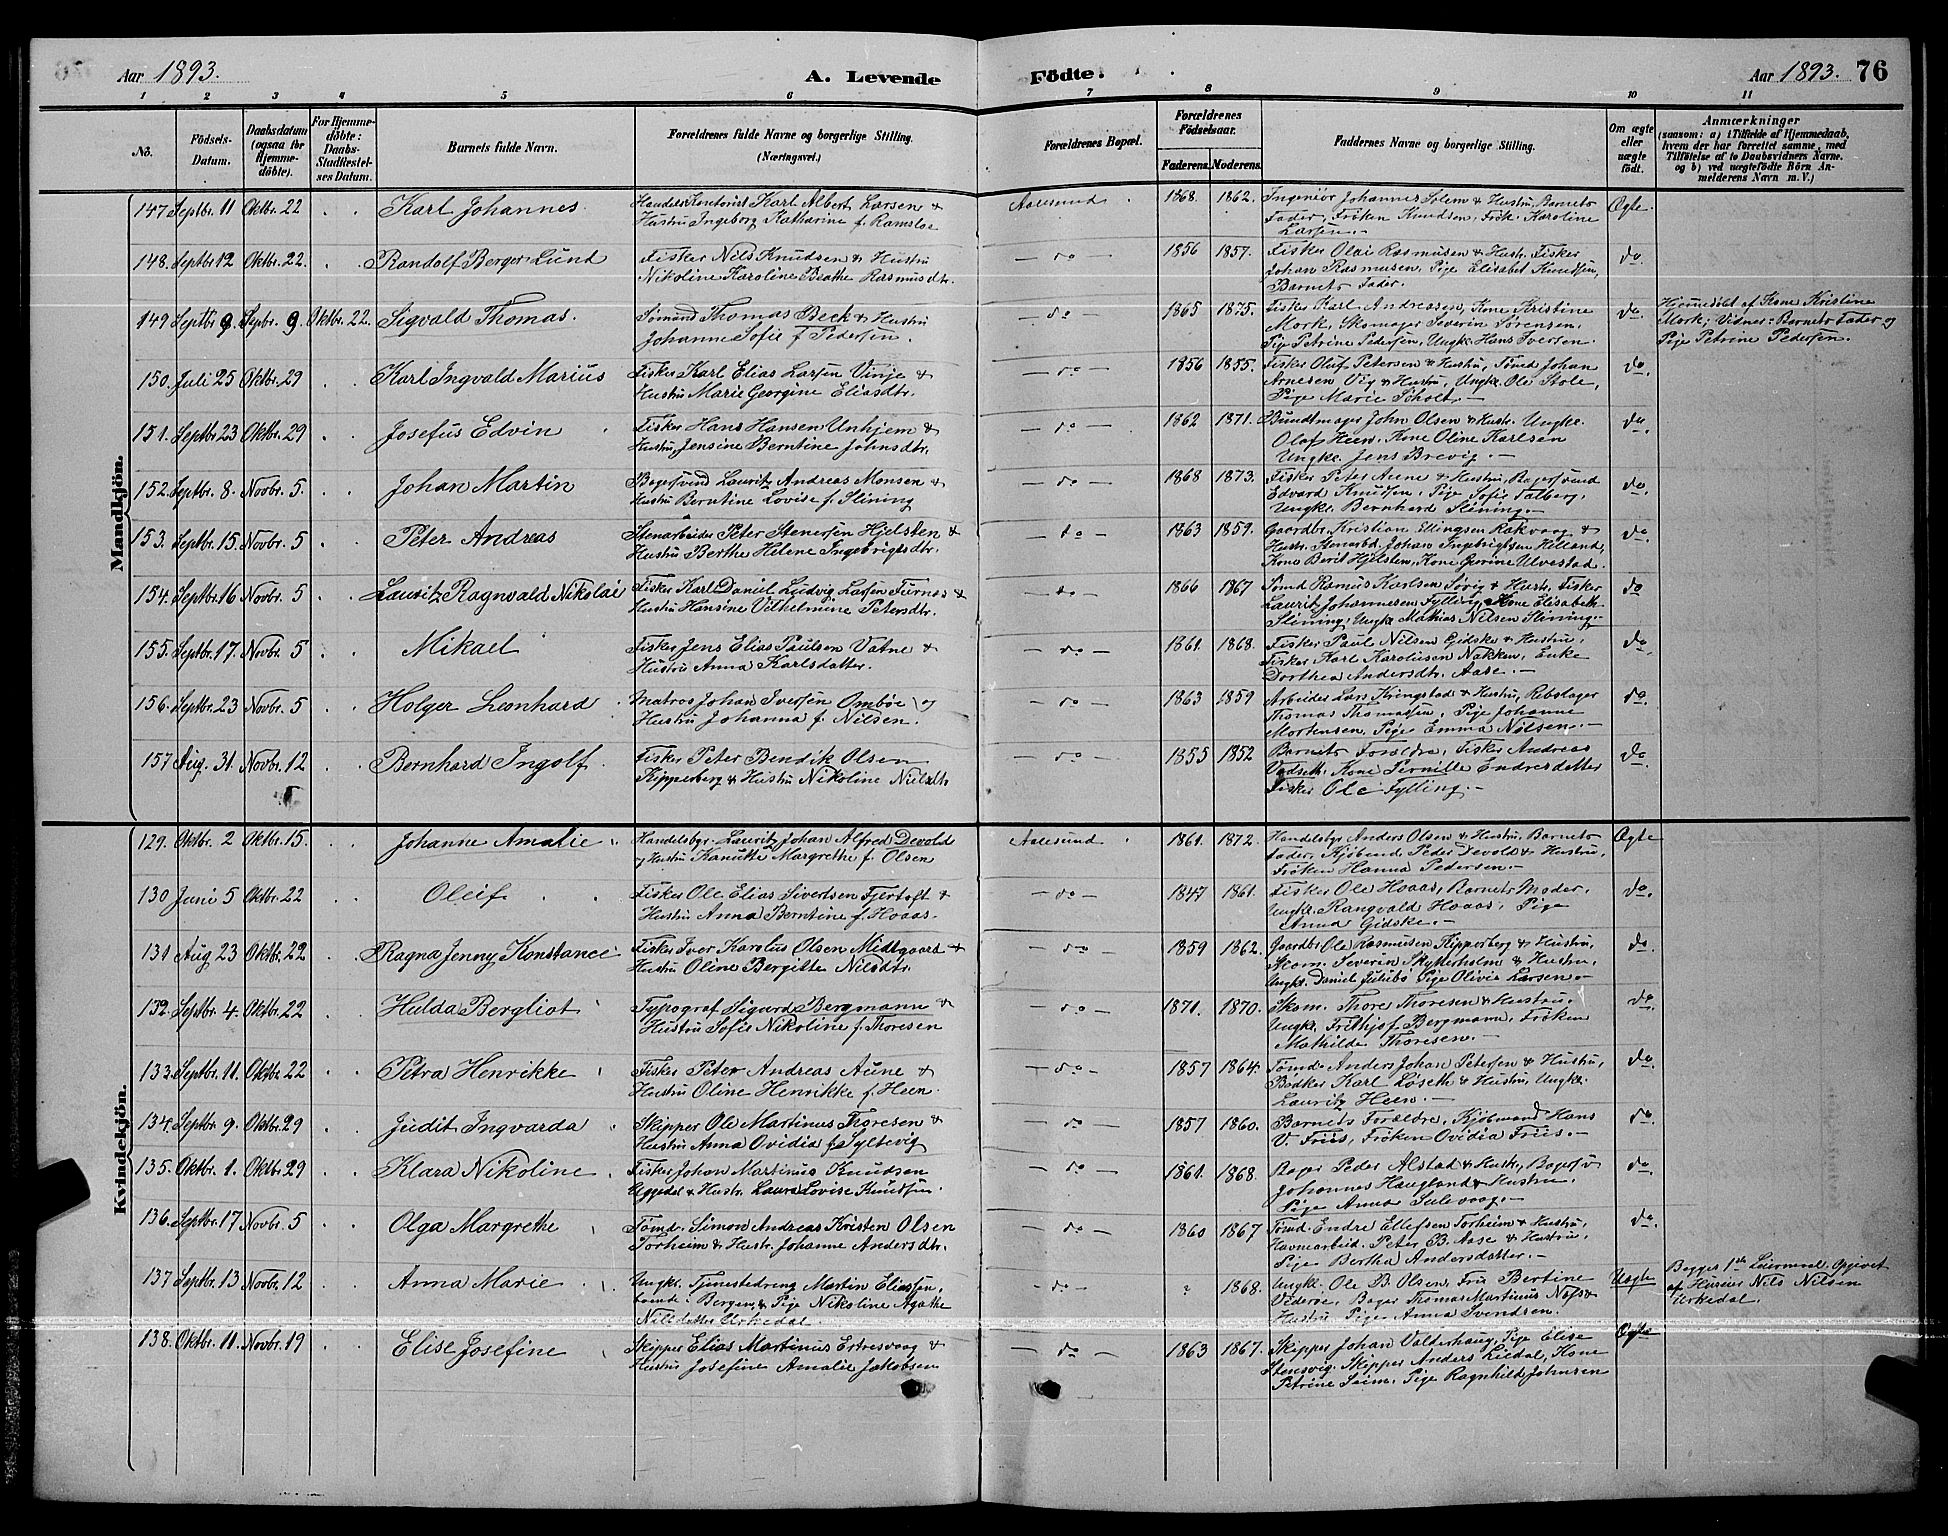 Aar 1893.
A. Levende Födte.
Aar 1893. 76
1 2 3 4 5 6 7 8 9 10 11
No.
Födsels-Datum.
Daabsdatum (ogsaa for Hjemmedöbte).
For Hjemmedöbte: Daabs-Stadfæstelses Datum.
Barnets fulde Navn.
Forældrenes fulde Navne og borgerlige Stilling. (Næringsvei.)
Forældrenes Bopæl.
Forældrenes Födselsaar.
Faderens. Moderens.
Faddernes Navne og borgerlige Stilling.
Om ægte eller uægte födt.
Anmærkninger
(saasom: a) i Tilfælde af Hjemmedaab, hvem der har forrettet samme, med Tilföielse af to Daabsvidners Navne, og b) ved uægtefödte Börn Anmelderens Navn m. V.)
Mandkjön.
147 Septbr. 11 Oktbr. 22 Karl Johannes Handelskontorist Karl Albert Larsen &
Hustru Ingeborg Katharine f. Ramsloe
Aalesund 1868 1862. Ingeniör Johannes Solem & Hustru, Barnets
Fader, Fröken Knudsen, Frök. Karoline
Larsen.
Ægte
148. Septbr. 12 Oktbr. 22. Randolf Berger Lund Fisker Nils Knudsen & Hustru
Nikoline Karoline Beathe Rasmusdtr.
do 1856 1857. Fisker Olai Rasmusen & Hustr. Fisker
Johan Rasmusen, Pige Elisabet Knudsen,
Barnets Fader.
do
149 Septbr 9. Septbr. 9 Oktbr. 22. Sigvald Thomas. Sömand Thomas Beck & Hustru
Johanne Sofie f Pedersen.
do 1865 1875. Fisker Karl Andreasen, Kone Kristine
Mork, Skomager Severin Sörensen,
Pige Petrine Pedersen, Ungk. Hans Iversen.
do. Hjemmedöbt af Kone Kristine
Mork; Vidner: Barnets Fader og
Pige Petrine Pedersen.
150. Juli 25 Oktbr. 29 Karl Ingvald Marius Fisker Karl Elias Larsen Vinje &
Hustru Marie Georgine Eliasdtr.
do 1856 1855. Fisker Oluf Petersen & Hustru, Tömd Johan
Arnesen Vig & Hustru, Ungk. Ole Stole,
Pige Marie Scholt.
do.
151. Septbr 23 Oktbr. 29 Josefus Edvin Fisker Hans Hansen Unhjem &
Hustru Jensine Berntine Johnsdtr.
do 1862 1871. Bundtmager John Olsen & Hustr. Ungk.
Olaf Heen, Kone Oline Karlsen
Ungk. Jens Brevig.
do.
152. Septbr. 8. Novbr. 5. Johan Martin Bagersvend Lauritz Andreas Monsen &
Hustru Berntine Lovise f. Slining
do 1868 1873. Fisker Peter Aune & Hustru, Bagersvend
Edvard Knudsen, Pige Sofie Talberg,
Ungk. Bernhard Slining.
do.
153. Septbr. 15. Novbr. 5 Peter Andreas Stenarbeider Peter Stenersen Hjelsten &
Hustru Berthe Helene Ingebrigtsdtr.
do 1863 1859. Gaardbr. Kristian Ellingsen Rakvaag &
Hustr. Stenarbd. Johan Ingebrigtsen Helland,
Kone Berit Hjelsten, Kone Gurine Ulvestad.
do.
154. Septbr. 16 Novbr. 5 Lauritz Ragnvald Nikolai Fisker Karl Daniel Ludvig Larsen Furnes &
Hustru Hansine Vilhelmine Petersdtr.
do 1866 1867 Tömd Rasmus Karlsen Sövig & Hustr. Fisker
Lauritz Johannesen Fylling, Kone Elisabeth
Slining, Ungk Mathias Nilsen Slining.
do
155. Septbr. 17. Novbr. 5 Mikael Fisker Jens Elias Paulsen Vatne &
Hustru Anna Karlsdatter.
do 1861. 1868. Fisker Paul Nilsen Gidske & Hustru,
Fisker Karl Karolusen Nakken, Enke
Dorthea Andersdtr. Aase.
do
156. Septbr. 23 Novbr. 5 Holger Leonhard Matros Johan Iversen Omböe og
Hustru Johanna f. Nilsen.
do 1863 1859 Arbeider Lars Kringstad & Hustru, Rebslager
Thomas Thomassen, Pige Johanne
Mortensen, Pige Emma Nilsen.
do
157 Aug. 31. Novbr. 12 Bernhard Ingolf Fisker Peter Bendik Olsen
Flipperberg & Hustru Nikoline Nielsdtr
do 1855 1852 Barnets Forældre, Fisker Andreas
Vadseth, Kone Pernille Endresdatter
Fisker Ole Fylling.
do
Kvindekjön.
129. Oktbr. 2 Oktbr. 15. Johanne Amalie Handelsbgr. Lauritz Johan Alfred Devold
og Hustru Kanutte Margrethe f. Olsen
Aalesund 1861. 1872. Handelsbgr Anders Olsen & Hustru, Barnets
Fader, Kjöbmd. Peder Devold & Hustru,
Fröken Hanna Pedersen.
Ægte
130 Juni 5 Oktbr. 22 Oleif Fisker Ole Elias Sivertsen Fjertoft &
Hustru Anna Berntine f. Hoaas.
do 1847 1861. Fisker Ole Hoaas, Barnets Moder,
Ungk. Rangvald Hoaas, Pige
Anna Gidske.
do.
131 Aug 23 Oktbr. 22 Ragna Jenny Konstance Fisker Iver Karolus Olsen Midtgaard &
Hustru Oline Bergitte Nilsdtr.
do 1859 1862. Gaardbr Ole Rasmusen Flipperberg & Hustru,
Skom. Severin Skytterholm & Hustru,
Ungk. Daniel Julibö Pige Olivia Larsen
do.
132. Septbr. 4. Oktbr. 22 Hulda Bergliot Typograf Sigurd Bergmann &
Hustru Sofie Nikoline f. Thoresen
do 1871. 1870. Skom. Thore Thoresen & Hustru,
Ungk. Frithjof Bergmann, Fröken
Mathilde Thoresen.
do.
133. Septbr. 11. Oktbr. 22 Petra Henrikke Fisker Peter Andreas Aune &
Hustru Oline Henrikke f. Heen.
do 1857 1864. Tömd. Anders Johan Petersen & Hustru,
Bödker Karl Löseth & Hustru, Ungk.
Lauritz Heen.
do.
134. Septbr. 9. Oktbr. 29 Judit Ingvarda Skipper Ole Martinus Thoresen &
Hustru Anna Ovidia f. Syltevig
do 1857 1860. Barnets Forældre, Kjöbmand Hans
V. Friis, Fröken Ovidia Friis.
do.
135. Oktbr. 1. Oktbr. 29 Klara Nikoline Fisker Johan Martinus Knudsen
Uggedal & Hustr. Laura Lovise Knudsen.
do 1861. 1868. Bager Peder Alstad & Hustr., Bagersv
Johannes Haugland & Hustru,
Pige Anna Sulevaag.
do.
136. Septbr. 17 Novbr. 5 Olga Margrethe Tömd. Simon Andreas Kristen Olsen
Torheim & Hustr. Johanne Andersdtr.
do 1860 1867 Tömd. Endre Ellefsen Torheim & Hustru,
Havnearbeid. Peter B. Aase & Hustru,
Pige Bertha Andersdatter.
do.
137 Septbr. 13 Novbr. 12 Anna Marie Ungk. Tjenestedreng Martin Eliassen,
Bergen, & Pige Nikoline Agathe
Nilsdatter Urkedal.
do ? 1868. Ungk. Ole B. Olsen, Fru Bertine
Videröe, Bager Thomas Martinus Næs &
Hustru Pige Anna Svendsen.
Uægte Begges 1ste Leiermaal Opgivet
af Husmr Nils Nilsen
Urkedal.
138. Oktbr. 11. Novbr. 19 Elise Josefine Skipper Elias Martinus Ertresvaag &
Hustru Josefine Amalie Jakobsen
do 1863 1867. Skipper Johan Valderhaug, Pige Elise
Stensvig, Skipper Anders Liedal, Kone
Petrine Seim, Pige Ragnhild Johnsen
Ægte